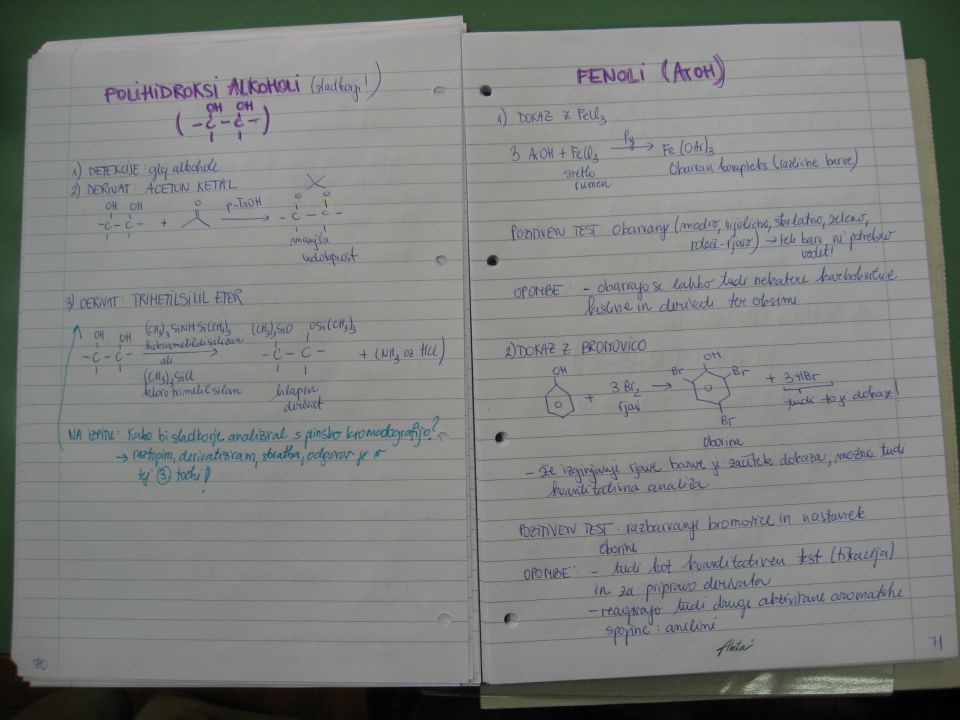 POLIHIDROKSI ALKOHOLI (sladkorji!)
OH OH
( - C - C - )
1) DETEKCIJE: glej alkohole
2) DERIVAT: ACETON KETAL
OH OH
O
O O
-C-C- + p-TsOH → -C-C-
manjša
vodotopnost
3) DERIVAT: TRIMETILSILIL ETER
OH OH
-C-C-
(CH3)3SiNHSi(CH3)3
heksametildisilizan
ali
(CH3)3SiCl
klorotrimetilsilan
(CH3)3SiO OSi(CH3)3
-C-C-
+ (NH3 oz HCl)
hlapen
derivat
NA IZPITU: Kako bi sladkorje analiziral s plinsko kromatografijo?
→ raztopim, derivatiziram, skratka, odgovor je v
tej 3 točki!
70
FENOLI (ArOH)
1) DOKAZ Z FeCl3
3 ArOH + FeCl3 Py → Fe(OAr)3
svetlo
rumen
Obarvan kompleks (različne barve)
POZITIVEN TEST: Obarvanje (modro, vijolično, škrlatno, zeleno,
rdeče-rjavo) → teh barv ni potrebno
vedet!
OPOMBE: - obarvajo se lahko tudi nekatere karboksilne
kisline in derivati ter oksimi
2) DOKAZ Z BROMOVICO
OH
+ 3 Br2 →
rjav
OH
Br Br
Br
oborina
+ 3 HBr
tudi to je dokaz!
- že izginjanje rjave barve je začetek dokaza, možna tudi
kvantitativna analiza
POZITIVEN TEST: razbarvanje bromovice in nastanek
oborine
OPOMBE: - tudi kot kvantitativen test (titracija)
in za pripravo derivatov
- reagirajo tudi druge aktivirane aromatske
spojine: anilini
71